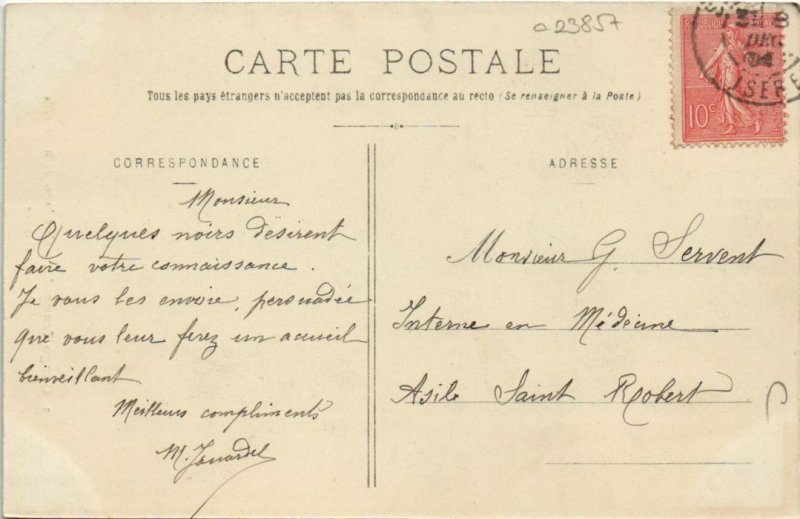 a 23857
CARTE POSTALE
Tous les pays étrangers n'acceptent pas la correspondance au recto (Se renseigner à la Poste)
10c
8
DEC
04
ISERE
CORRESPONDANCE
Monsieur
Quelques noirs désirent
faire votre connaissance.
Je vous les envoie, persuadée
que vous leur ferez un accueil
bienveillant
Meilleurs compliments
M.
ADRESSE
Monsieur G. Servent
Interne en Médecine
Asile Saint Robert